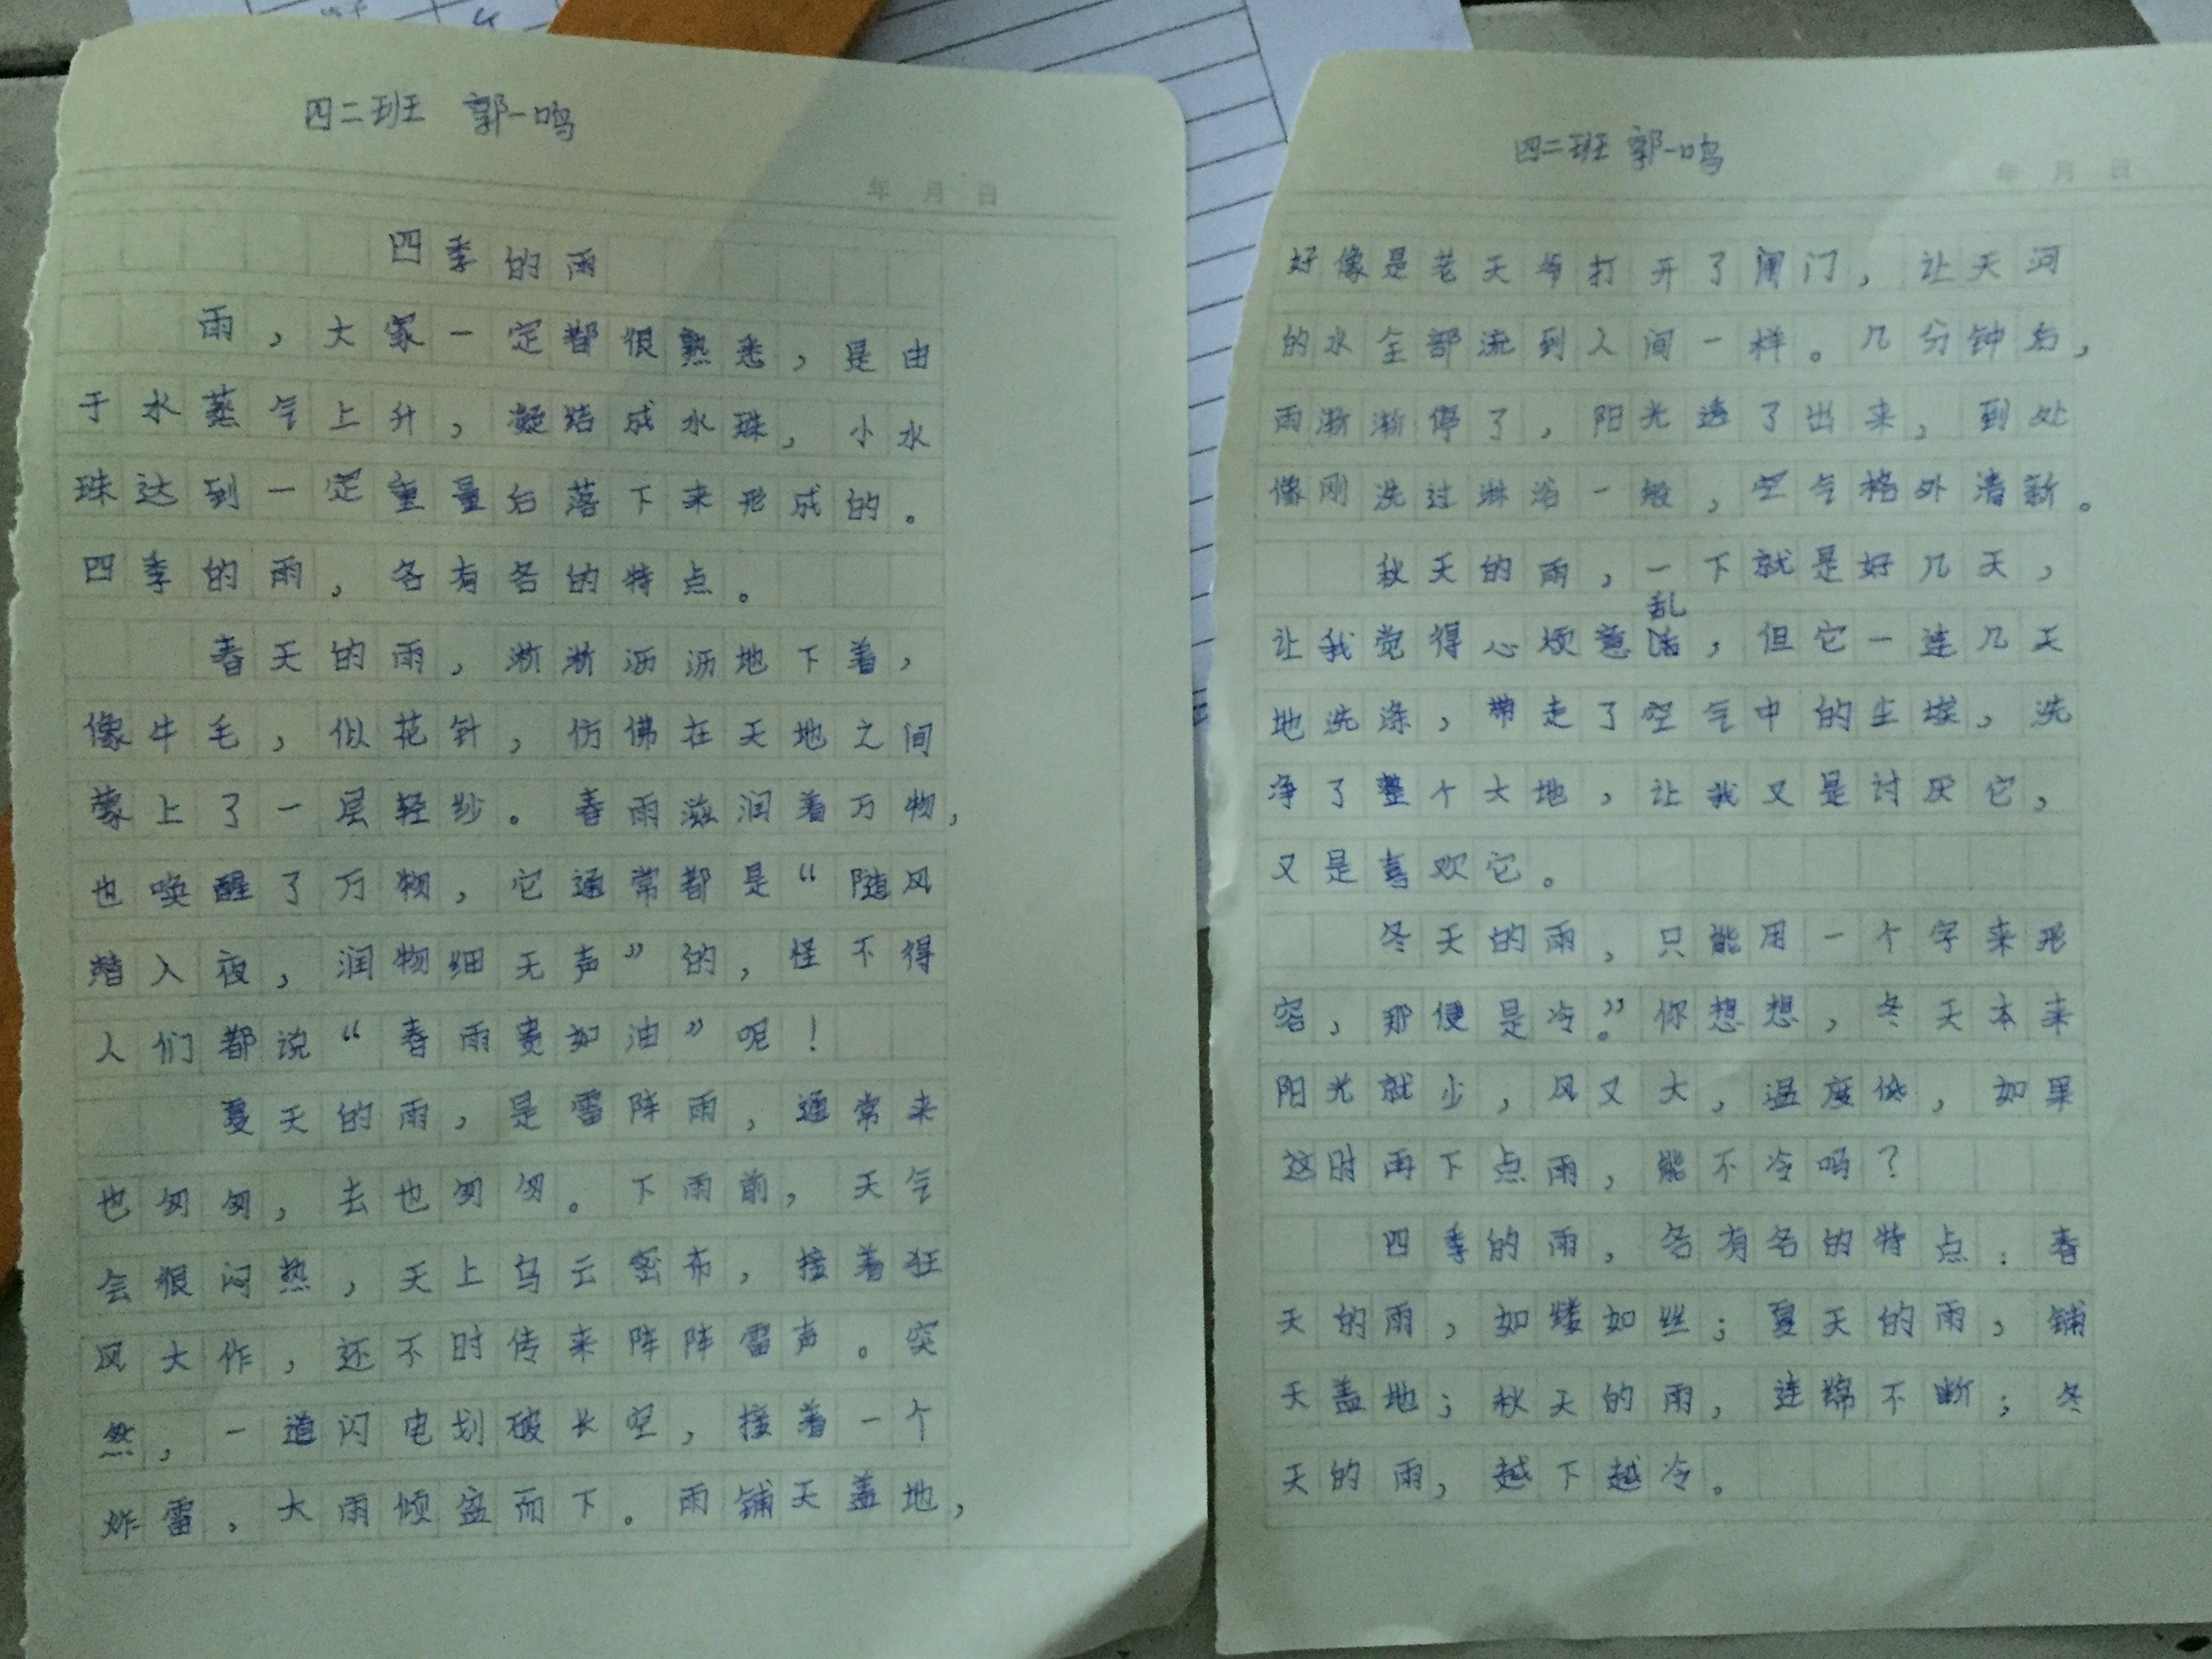 四二班 郭一鸣
年 月 日
四季的雨
雨，大家一定都很熟悉，是由
于水蒸气上升，凝结成水珠，小水
珠达到一定重量后落下来形成的。
四季的雨，各有各的特点。
春天的雨，淅淅沥沥地下着，
像牛毛，似花针，仿佛在天地之间
蒙上了一层轻纱。春雨滋润着万物，
也唤醒了万物，它通常都是“随风
潜入夜，润物细无声”的，怪不得
人们都说“春雨贵如油”呢！
夏天的雨，是雷阵雨，通常来
也匆匆，去也匆匆。下雨前，天气
会很闷热，天上乌云密布，接着狂
风大作，还不时传来阵阵雷声。突
然，一道闪电划破长空，接着一个
炸雷，大雨倾盆而下。雨铺天盖地，
四二班 郭一鸣
年 月 日
好像是老天爷打开了闸门，让天河
的水全部流到人间一样。几分钟后，
雨渐渐停了，阳光透了出来，到处
像刚洗过淋浴一般，空气格外清新。
秋天的雨，一下就是好几天，
让我觉得心烦意乱，但它一连几天
地洗涤，带走了空气中的尘埃，洗
净了整个大地，让我又是讨厌它，
又是喜欢它。
冬天的雨，只能用一个字来形
容，那便是冷。”你想想，冬天本来
阳光就少，风又大，温度低，如果
这时再下点雨，能不冷吗？
四季的雨，各有各的特点：春
天的雨，如缕如丝；夏天的雨，铺
天盖地；秋天的雨，连绵不断；冬
天的雨，越下越冷。